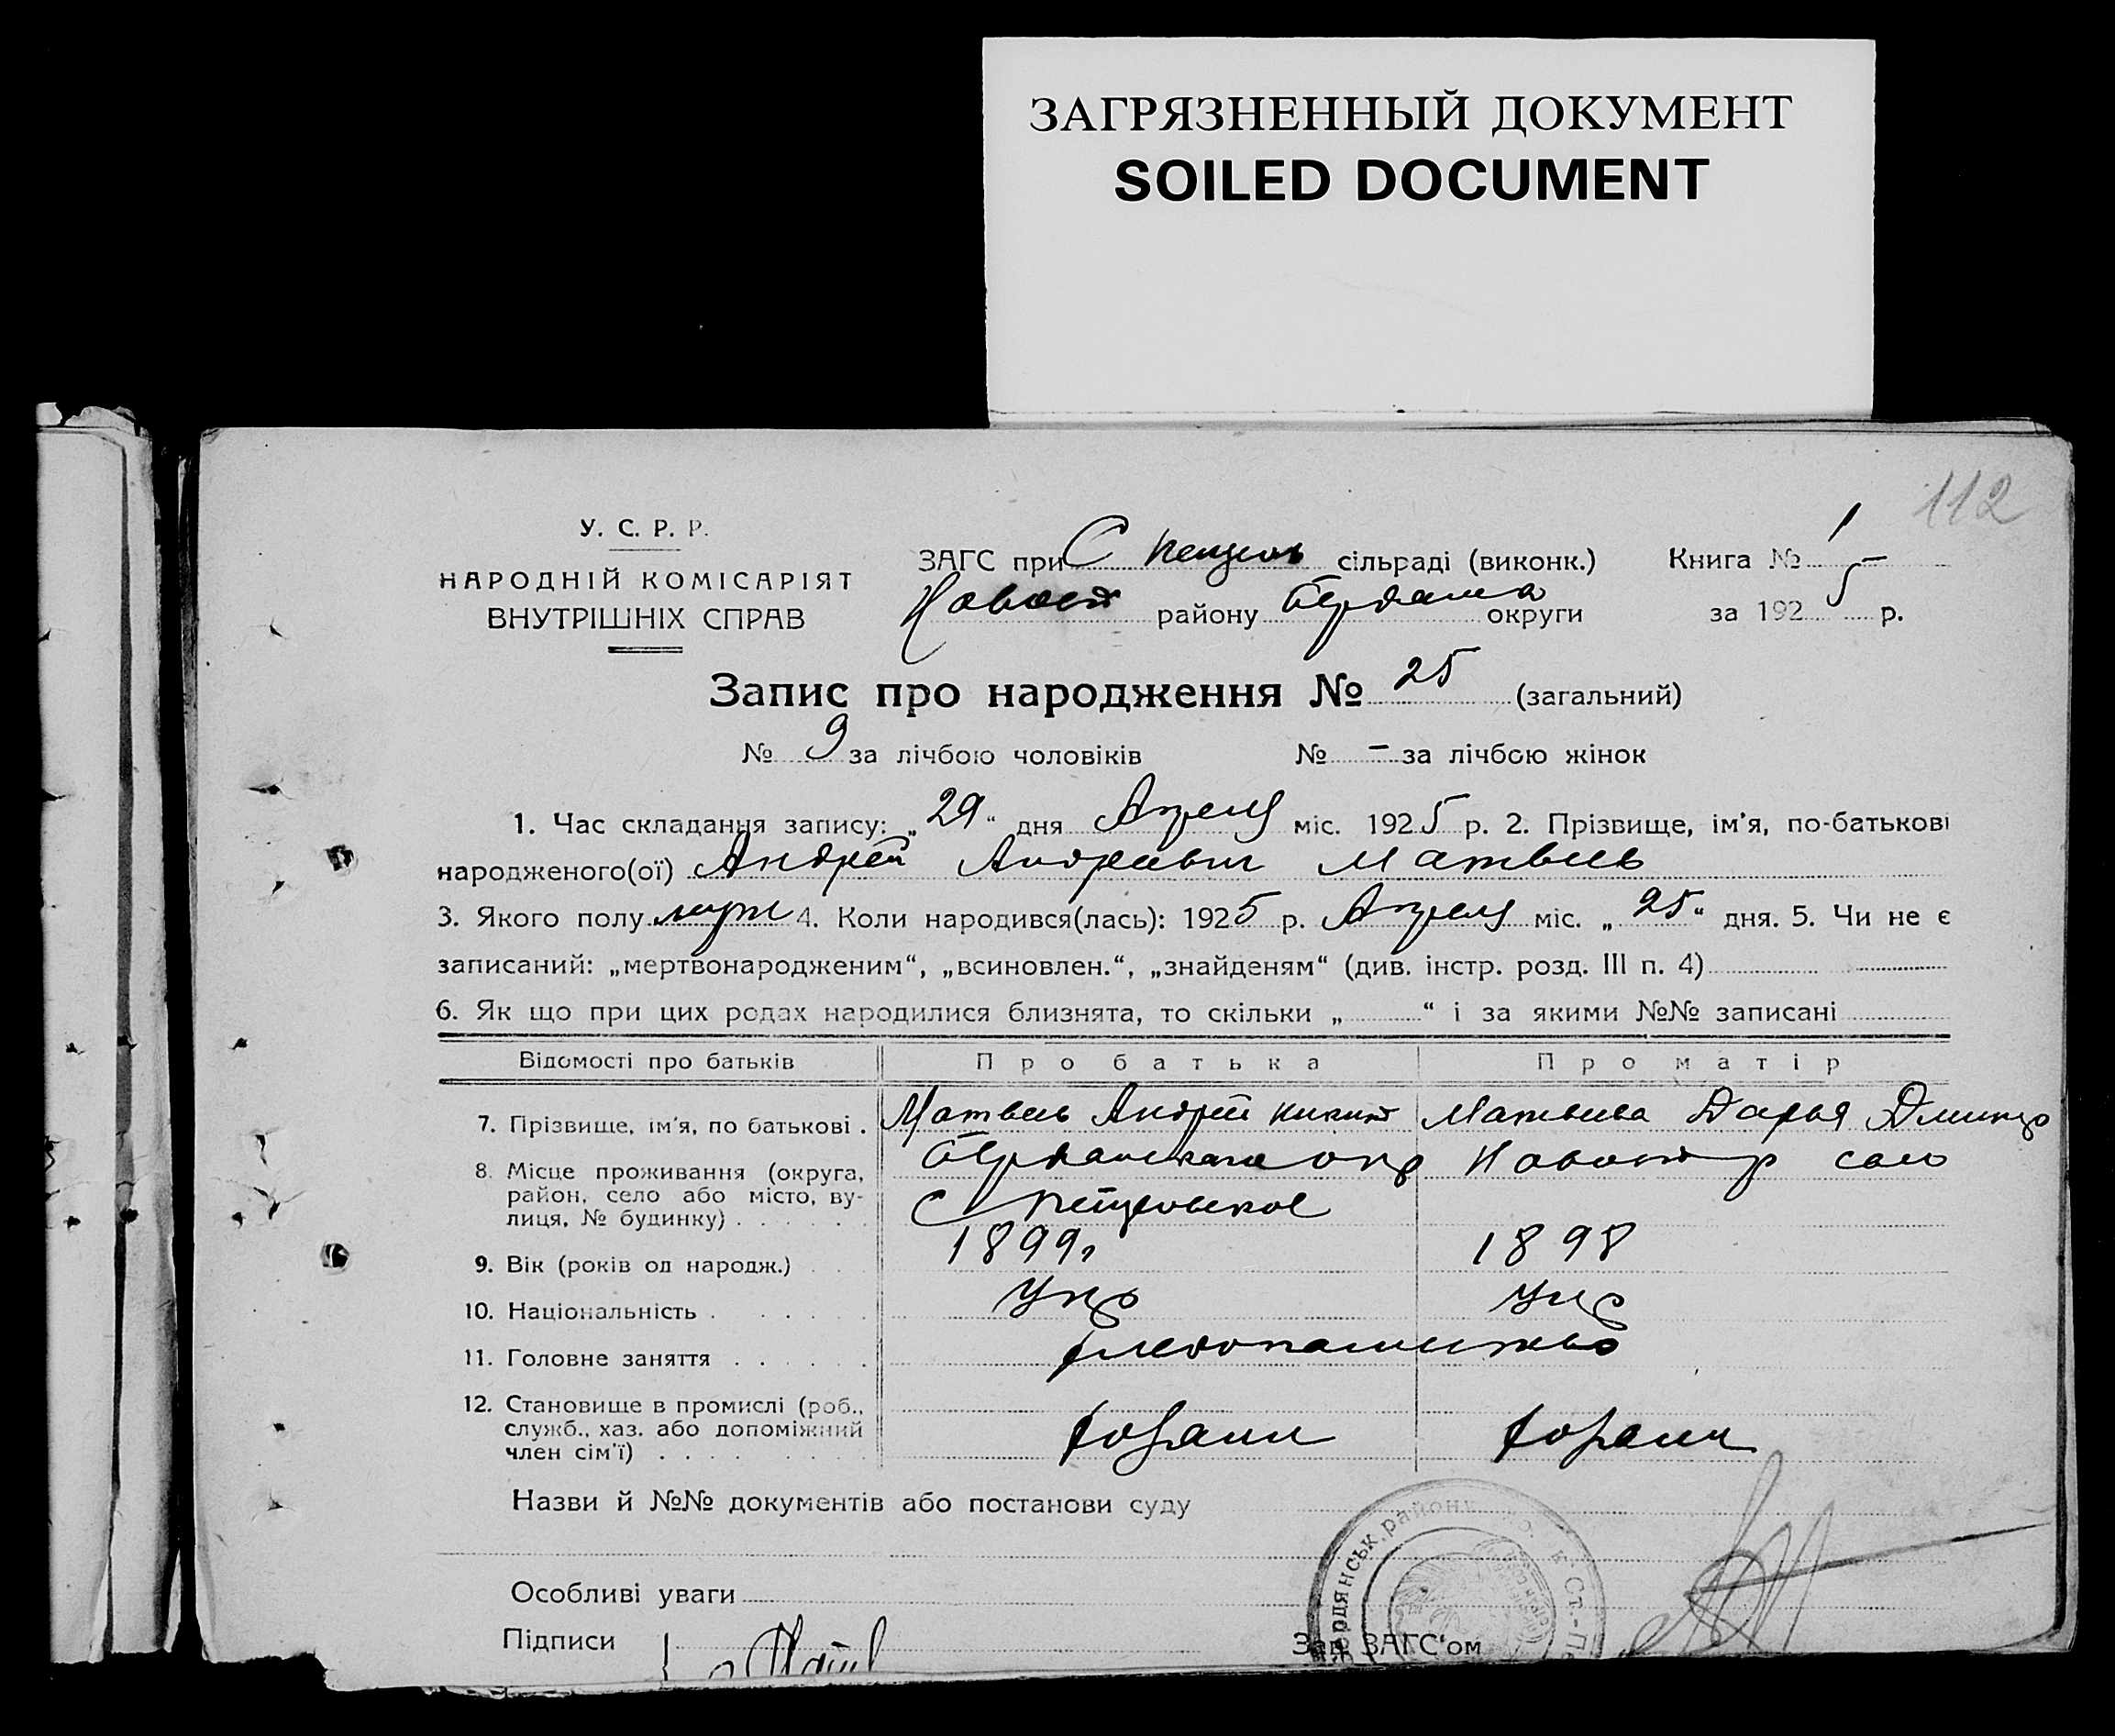 ЗАГРЯЗНЕННЫЙ ДОКУМЕНТ
SOILED DOCUMENT
112
У. С. Р. Р.
НАРОДНІЙ КОМІСАРІЯТ
ВНУТРІШНІХ СПРАВ
ЗАГС при С сільраді (виконк.) Книга № 1
району округи за 1925 р.
Запис про народження № 25 (загальний)
№ 9 за лічбою чоловіків № – за лічбою жінок
1. Час складання запису: „29“ дня Апреля міс. 1925 р. 2. Прізвище, ім’я, по-батькові
народженого(ої) Андрей Андреевич Матвеев
3. Якого полу муж 4. Коли народився(лась): 1925 р. Апреля міс. „25“ дня. 5. Чи не є
записаний: „мертвонародженим“, „всиновлен.“, „знайденям“ (див. інстр. розд. III п. 4)
6. Як що при цих родах народилися близнята, то скільки „ “ і за якими №№ записані
Відомості про батьків Про батька Про матір
7. Прізвище, ім’я, по батькові . Матвеев Андрей Никит Матвеева Дарья Дмитр
8. Місце проживання (округа, район, село або місто, вулиця, № будинку) Бердянская окр р село
С
9. Вік (років од народж.) 1899 1898
10. Національність Укр Укр
11. Головне заняття хлебопашество
12. Становище в промислі (роб.,
служб., хаз. або допоміжний
член сім’ї)
Назви й №№ документів або постанови суду
Особливі уваги
Підписи
Зав. ЗАГС‘ом